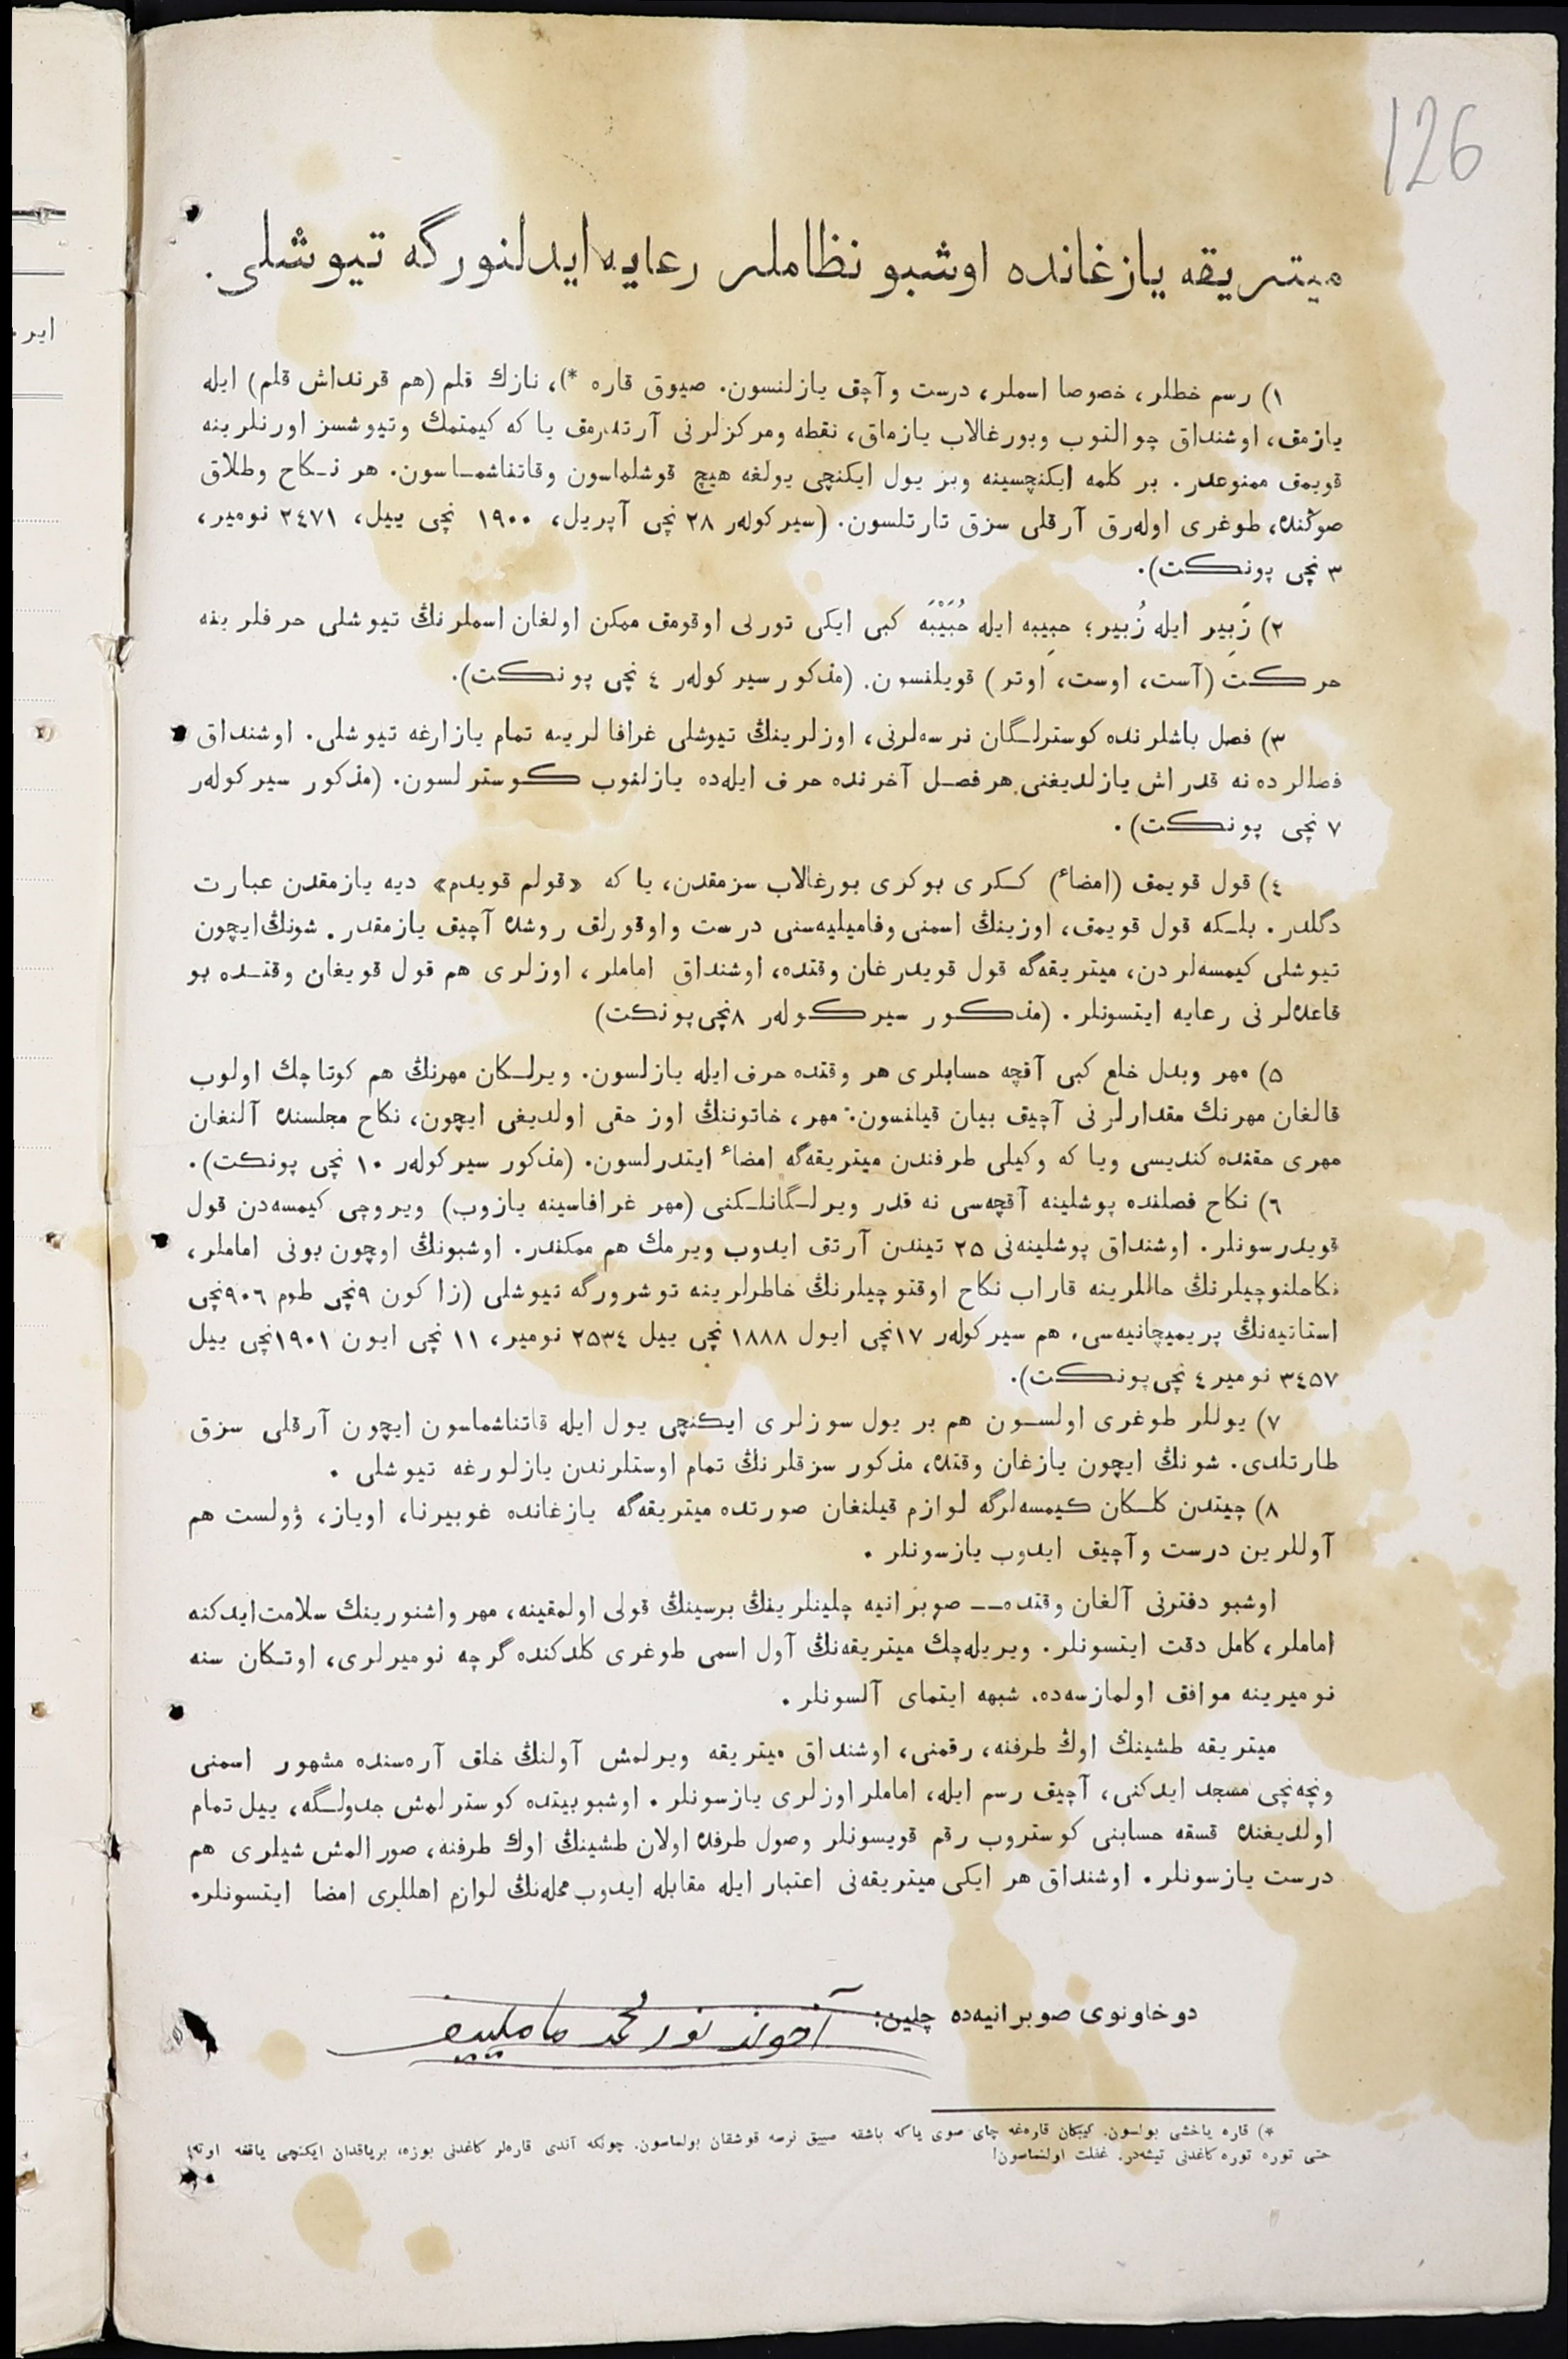 126
میتریقه یازغانده اوشبو نظاملر رعایه ایدلنورگه تیوشلی.
۱) رسم خطلر، خصوصا اسملر، درست و آچق یازلنسون. صیوق قاره *)، نازك قلم (هم قرنداش قلم) ایله
یازمق، اوشنداق چوالتوب وبورغالاب یازماق، نقطه ومرکزلرنی آرتدرمق یا که کیمتمك وتیوشسز اورنلرینه
قویمق ممنوعدر. بر کلمه ایکنچسینه وبر یول ایکنچی یولغه هیچ قوشلماسون وقاتناشماسون. هر نکاح وطلاق
صوڭنده، طوغری اولەرق آرقلی سزق تارتلسون. (سیرکولەر ۲۸ نچی آپریل، ۱۹۰۰ نچی ییل، ۲٤۷۱ نومیر،
۳ نچی پونکت).
۲) زَبِیر ایله زُبیر؛ حبِیبه ایله حُبَیْبَه کبی ایکی تورلی اوقومق ممکن اولغان اسملرنڭ تیوشلی حرفلرینه
حرکت (آست، اوست، اوتر) قویلنسون. (مذکور سیرکولەر ٤ نچی پونکت).
۳) فصل باشلرنده کوسترلگان نرسەلرنی، اوزلرینڭ تیوشلی غرافالرینه تمام یازارغه تیوشلی. اوشنداق
فصللرده نه قدر اش یازلدیغنی هر فصل آخرنده حرف ایلەده یازلنوب کوسترلسون. (مذکور سیرکولەر
۷ نچی پونکت).
٤) قول قویمق (امضاء) ککری بوکری بورغالاب سزمقدن، یا که «قولم قویدم» دیه یازمقدن عبارت
دگلدر. بلکه قول قویمق، اوزینڭ اسمنی وفامیلیەسنی درست واوقورلق روشده آچیق یازمقدر. شونڭ ایچون
تیوشلی کیمسەلردن، میتریقەگه قول قویدرغان وقتده، اوشنداق اماملر، اوزلری هم قول قویغان وقتده بو
قاعدەلرنی رعایه ایتسونلر. (مذکور سیرکولەر ۸نچی پونکت)
۵) مهر وبدل خلع کبی آقچه حسابلری هر وقتده حرف ایله یازلسون. ویرلکان مهرنڭ هم کوتاچك اولوب
قالغان مهرنڭ مقدارلرنی آچیق بیان قیلنسون: مهر، خاتوننڭ اوز حقی اولدیغی ایچون، نکاح مجلسنده آلنغان
مهری حقنده کندیسی ویا که وکیلی طرفندن میتریقەگه امضاء ایتدرلسون. (مذکور سیرکولەر ۱۰ نچی پونکت).
٦) نکاح فصلنده پوشلینه آقچەسی نه قدر ویرلگانلکنی (مهر غرافاسینه یازوب) ویروچی کیمسەدن قول
قویدرسونلر. اوشنداق پوشلینەنی ۲۵ تیندن آرتق ایدوب ویرمك هم ممکندر. اوشبونڭ اوچون بونی اماملر،
نکاحلنوچیلرنڭ حاللرینه قاراب نکاح اوقتوچیلرنڭ خاطرلرینه توشرورگه تیوشلی (زاکون ۹نچی طوم ۹۰٦نچی
استاتیەنڭ پریمیچانیەسی. هم سیرکولەر ۱۷نچی ایول ۱۸۸۸ نچی ییل ۲۵۳٤ نومیر، ۱۱ نچی ایون ۱۹۰۱نچی ییل
۳٤۵۷ نومیر ٤ نچی پونکت).
۷) یوللر طوغری اولسون هم بر یول سوزلری ایکنچی یول ایله قاتناشماسون ایچون آرقلی سزق
طارتلدی. شونڭ ایچون یازغان وقتده، مذکور سزقلرنڭ تمام اوستلرندن یازلورغه تیوشلی.
۸) چیتدن کلکان کیمسەلرگه لوازم قیلنغان صورتده میتریقەگه یازغانده غوبیرنا، اویاز، ۋولست هم
آوللرین درست وآچیق ایدوب یازسونلر.
اوشبو دفترنی آلغان وقتده — صوبرانیه چلینلرینڭ برسینڭ قولی اولمقینه، مهر واشنورینڭ سلامت ایدکنه
اماملر، کامل دقت ایتسونلر. ویریلەچك میتریقەنڭ آول اسمی طوغری کلدکنده گرچه نومیرلری، اوتکان سنه
نومیرینه موافق اولمازسەده. شبهه ایتمای آلسونلر.
میتریقه طشینڭ اوڭ طرفنه، رقمنی، اوشنداق میتریقه ویرلمش آولنڭ خلق آرەسنده مشهور اسمنی
ونچەنچی مسجد ایدکنی، آچیق رسم ایله، اماملر اوزلری یازسونلر. اوشبو بیتده کوسترلمش جدولگه، ییل تمام
اولدیغنده قسقه حسابنی کوستروب رقم قویسونلر وصول طرفده اولان طشینڭ اوڭ طرفنه، صورالمش شیلری هم
درست یازسونلر. اوشنداق هر ایکی میتریقەنی اعتبار ایله مقابله ایدوب محلەنڭ لوازم اهللری امضا ایتسونلر.
دوخاونوی صوبرانیەده چلین: آخوند نور محمد ماملییف
*) قاره یاخشی بولسون. کیبکان قارەغه چای صوی یاکه باشقه صییق نرسه قوشقان بولماسون. چونکه آندی قارەلر کاغدنی بوزە، بریاقدان ایکنچی یاقغه اوتە؛
حتی تورە تورە کاغدنی تیشەدر. غفلت اولنماسون!
ایر